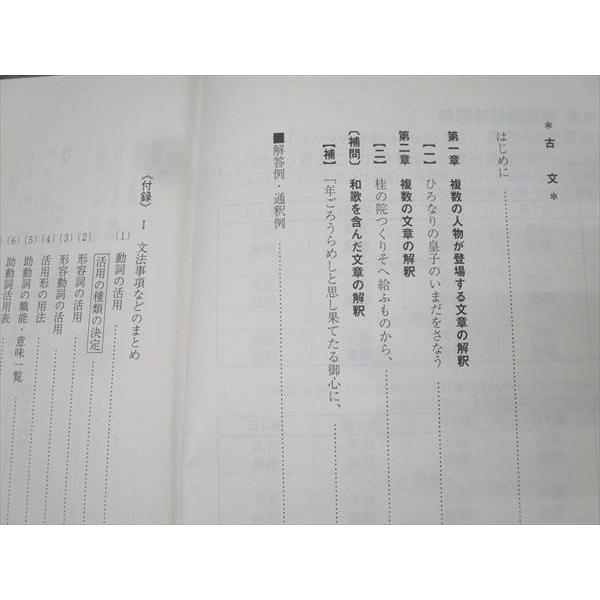 ＊古文＊
はじめに
第一章 複数の人物が登場する文章の解釈
【一】 ひろなりの皇子のいまだをさなう
第二章 複数の文章の解釈
【二】 桂の院つくりそへ給ふものから、
〔補問〕 和歌を含んだ文章の解釈
【補】 「年ごろうらめしと思し果てたる御心に、
■解答例・通釈例
《付録》 Ⅰ 文法事項などのまとめ
(1) 動詞の活用
活用の種類の決定
(2) 形容詞の活用
(3) 形容動詞の活用
(4) 活用形の用法
(5) 助動詞の職能・意味一覧
(6) 助動詞活用表